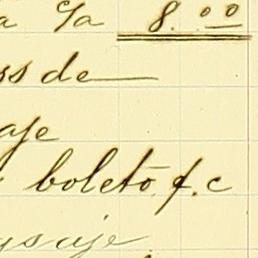 a Ya 8.00
ss de
aje
boleto f.c
saje